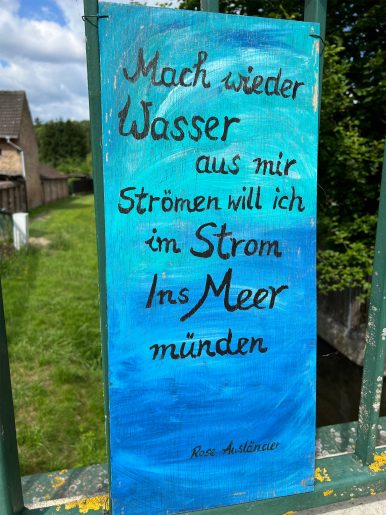 Mach wieder
Wasser
aus mir
Strömen will ich
im Strom
Ins Meer
münden
Rose Ausländer